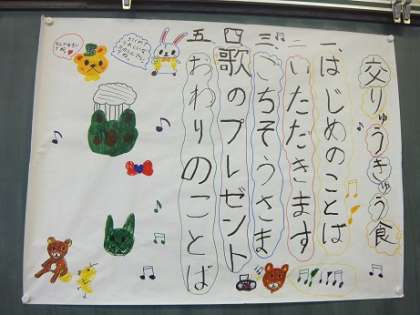 交りゅうきゅう食
一、はじめのことば
二、いただきます
三、ごちそうさま
四、歌のプレゼント
五、おわりのことば